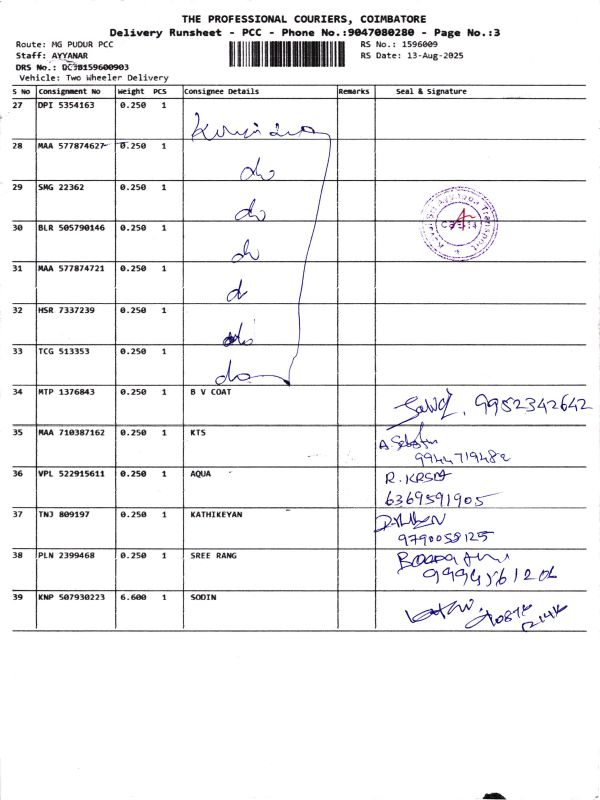 THE PROFESSIONAL COURIERS, COIMBATORE
Delivery Runsheet - PCC - Phone No.:9047080280 - Page No.:3
Route: MG PUDUR PCC RS No.: 1596009
Staff: AYYANAR RS Date: 13-Aug-2025
DRS No.: DC3B159600903
Vehicle: Two Wheeler Delivery
S No Consignment No Weight PCS Consignee Details Remarks Seal & Signature
27 DPI 5354163 0.250 1
28 MAA 577874627 0.250 1
do
29 SMG 22362 0.250 1
do
30 BLR 505790146 0.250 1
do
31 MAA 577874721 0.250 1
do
32 HSR 7337239 0.250 1
do
33 TCG 513353 0.250 1
do
34 MTP 1376843 0.250 1 B V COAT
9952342642
35 MAA 710387162 0.250 1 KTS
9944719482
36 VPL 522915611 0.250 1 AQUA
R.KRSNA
6369591905
37 TNJ 809197 0.250 1 KATHIKEYAN
9790058125
38 PLN 2399468 0.250 1 SREE RANG
39 KNP 507930223 6.600 1 SODIN